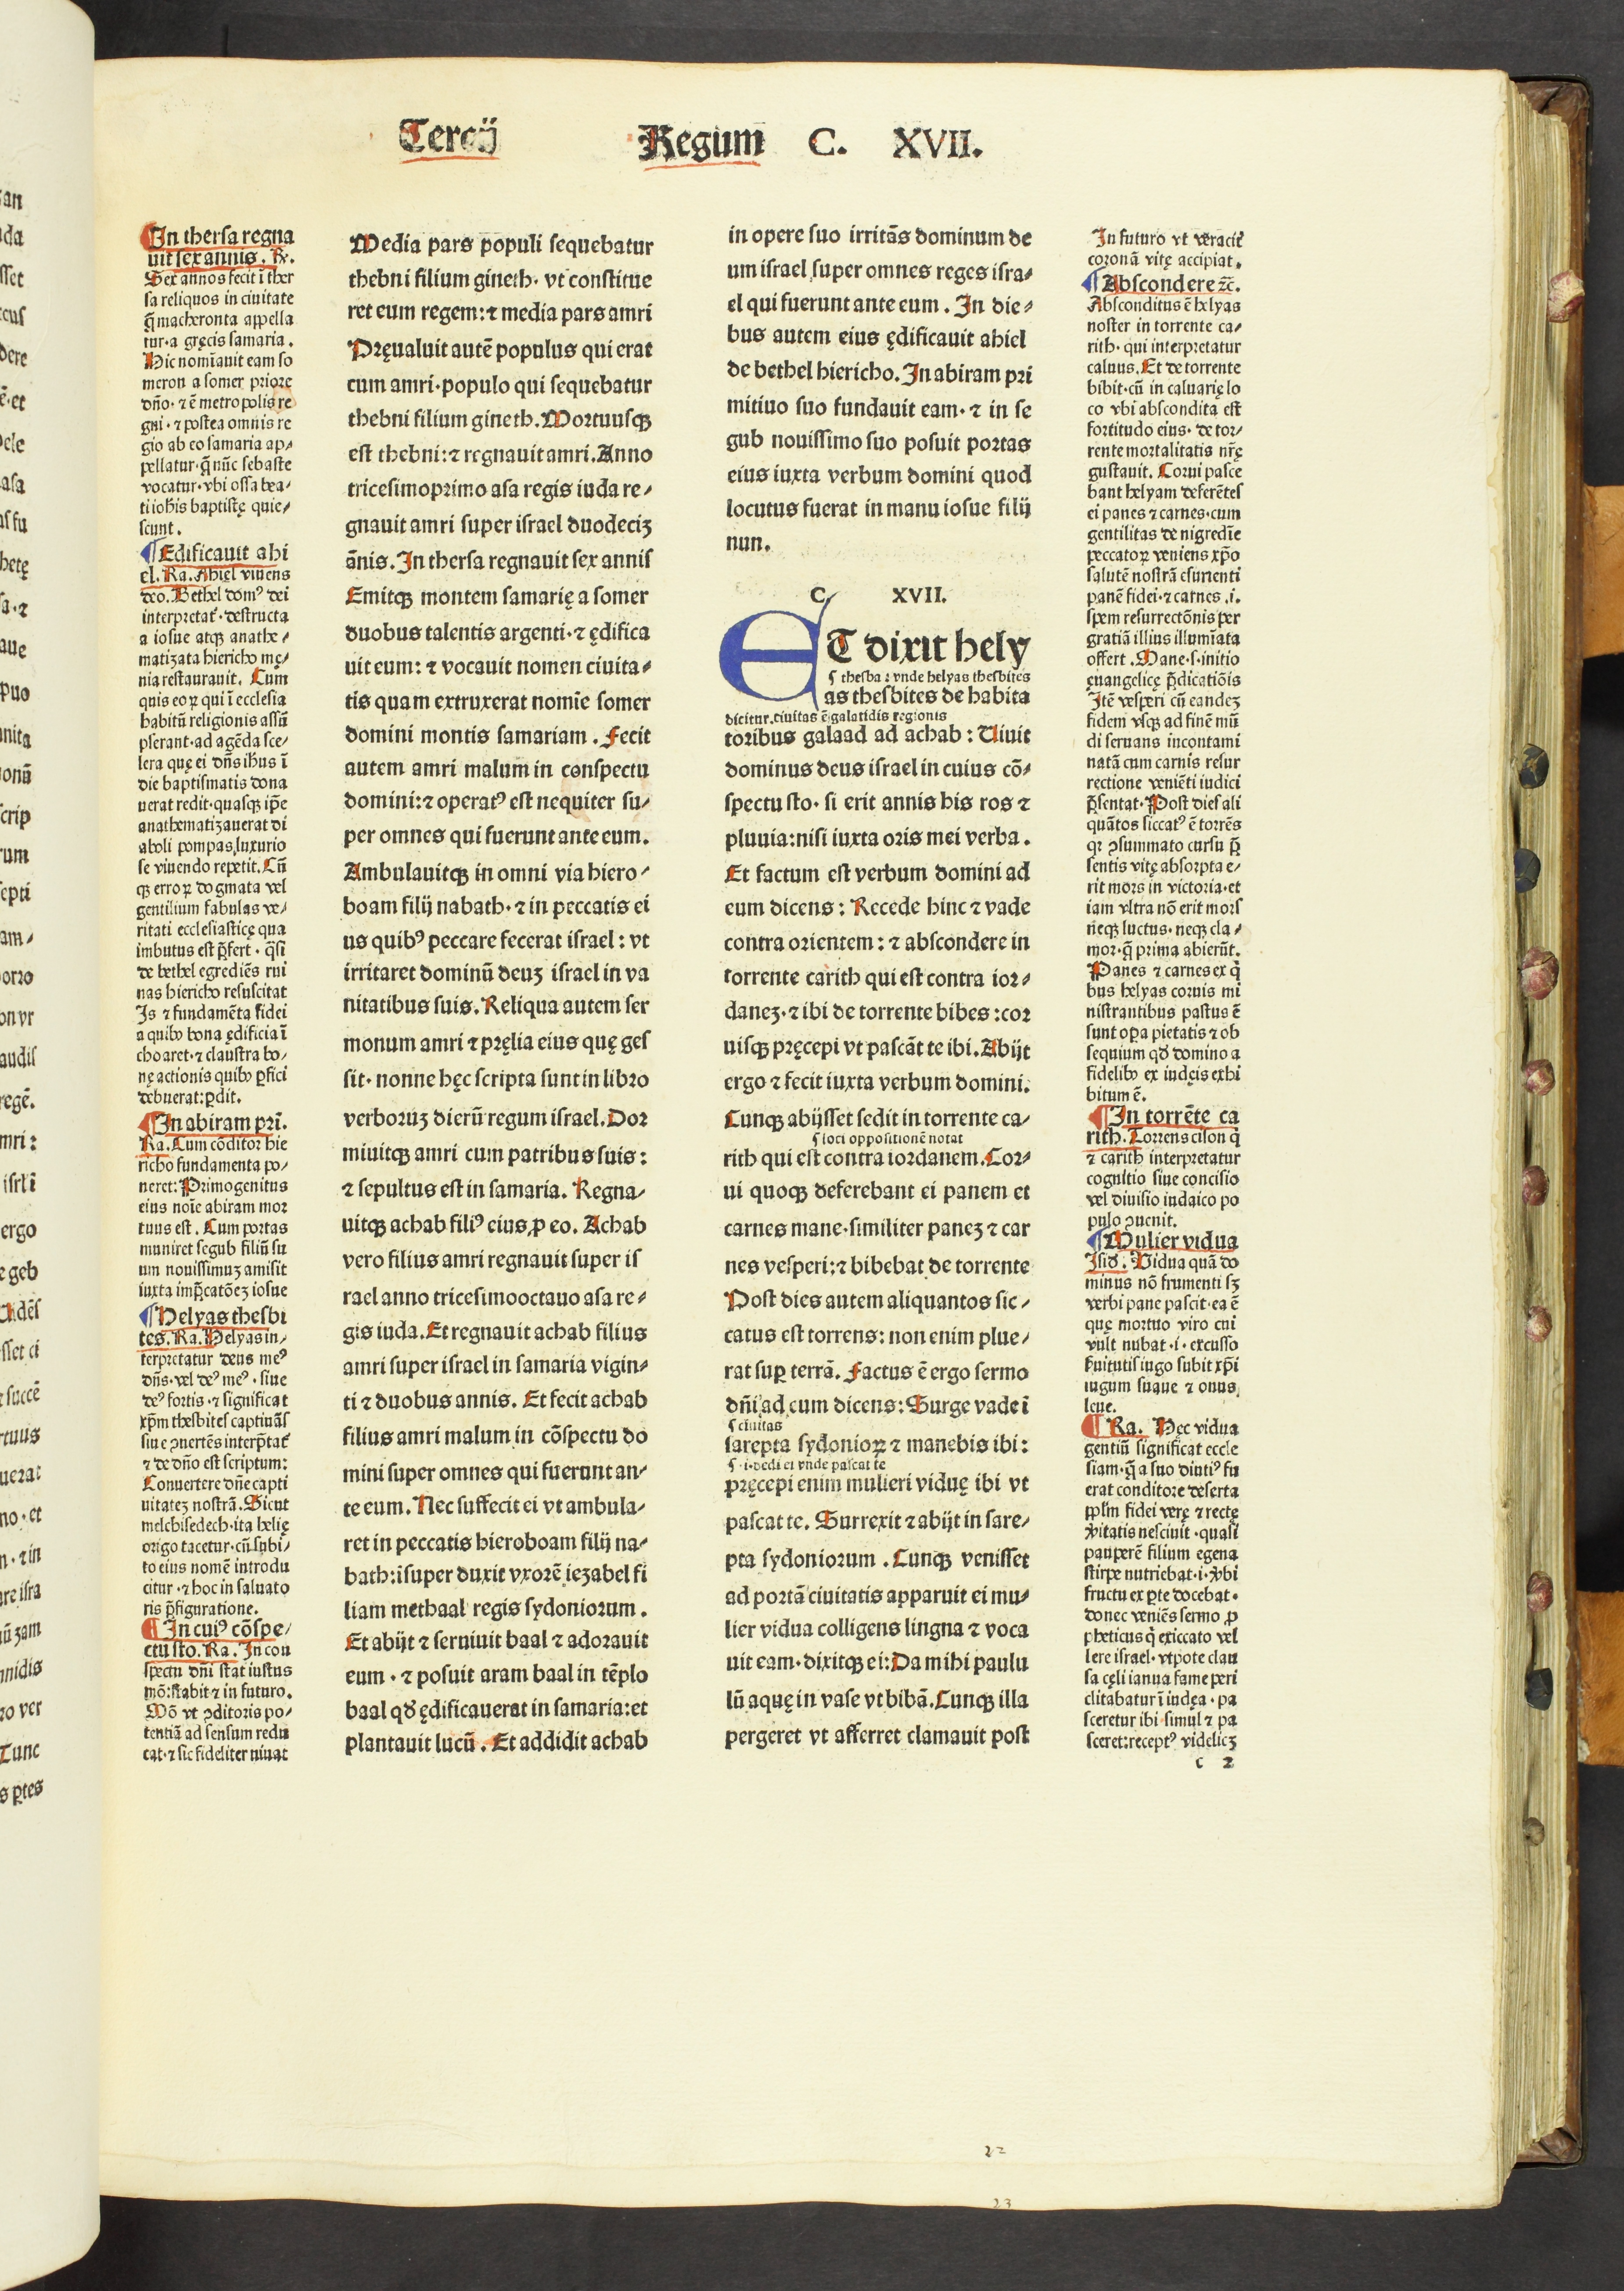 Tercij Regum C. XVII.
In thersa regna
uit sex annis. R̃.
Sex annos fecit ĩ ther
sa reliquos in ciuitate
q̃ macheronta appella
tur·a gręcis samaria.
Hic nomĩauit eam so
meron a somer priore
dño·⁊ ẽ metropolis re
gni·⁊ postea omnis re
gio ab eo samaria ap⸗
pellatur·q̃ nũc sebaste
vocatur·vbi ossa bea⸗
ti iohis baptistę quie⸗
scunt.
¶Edificauit ahi
el. Ra. Ahiel viuens
deo. Bethel domꝰ dei
interpretat᷑·destructa
a iosue atqꝫ anathe⸗
matizata hiericho mę⸗
nia restaurauit. Cum
quis eoꝝ qui ĩ ecclesia
habitũ religionis assũ
pserant·ad agẽda sce⸗
lera quę ei dñs ihũs ĩ
die baptismatis dona
uerat redit·quasqꝫ ip̃e
anathematizauerat di
aboli pompas luxurio
se viuendo repetit. Cũ
qꝫ erroꝝ dogmata vel
gentilium fabulas ve⸗
ritati ecclesiasticę qua
imbutus est p̃fert·q̃si
de bethel egrediẽs rui
nas hiericho resuscitat
Is ⁊ fundamẽta fidei
a quibꝰ bona ędificia ĩ
choaret·⁊ claustra bo⸗
nę actionis quibꝰ ꝑfici
debuerat:ꝑdit.
¶In abiram pri.
Ra. Cum cõditor hie
richo fundamenta po⸗
neret: Primogenitus
eius noĩe abiram mor
tuus est. Cum portas
muniret segub filiũ su
um nouissimuꝫ amisit
iuxta imp̃catõeꝫ iosue
¶Helyas thesbi
tes. Ra. Helyas in⸗
terpretatur deus meꝰ
dñs·vel deꝰ meꝰ·siue
deꝰ fortis·⁊ significat
xp̃m thesbites captiuãs
siue ꝯuertẽs interp̃tat᷑
⁊ de dño est scriptum:
Conuertere dñe capti
uitateꝫ nostrã. Sicut
melchisedech·ita helię
origo tacetur·cũ subi⸗
to eius nomẽ introdu
citur·⁊ hoc in saluato
ris p̃figuratione.
¶In cuiꝰ cõspe⸗
ctu sto. Ra. In con
spectu dñi stat iustus
mõ:stabit ⁊ in futuro.
Mõ vt ꝯditoris po⸗
tentiã ad sensum redu
cat·⁊ sic fideliter viuat
Media pars populi sequebatur
thebni filium gineth·vt constitue
ret eum regem:⁊ media pars amri
Pręualuit autẽ populus qui erat
cum amri·populo qui sequebatur
thebni filium gineth. Mortuusqꝫ
est thebni:⁊ regnauit amri. Anno
tricesimoprimo asa regis iuda re⸗
gnauit amri super israel duodeciꝫ
ãnis. In thersa regnauit sex annis
Emitqꝫ montem samarię a somer
duobus talentis argenti·⁊ ędifica
uit eum: ⁊ vocauit nomen ciuita⸗
tis quam extruxerat nomĩe somer
domini montis samariam. Fecit
autem amri malum in conspectu
domini:⁊ operatꝰ est nequiter su⸗
per omnes qui fuerunt ante eum.
Ambulauitqꝫ in omni via hiero⸗
boam filij nabath·⁊ in peccatis ei
us quibꝰ peccare fecerat israel: vt
irritaret dominũ deuꝫ israel in va
nitatibus suis. Reliqua autem ser
monum amri ⁊ pręlia eius quę ges
sit·nonne hęc scripta sunt in libro
verboruꝫ dierũ regum israel. Dor
miuitqꝫ amri cum patribus suis:
⁊ sepultus est in samaria. Regna⸗
uitqꝫ achab filiꝰ eius ꝓ eo. Achab
vero filius amri regnauit super is
rael anno tricesimooctauo asa re⸗
gis iuda. Et regnauit achab filius
amri super israel in samaria vigin⸗
ti ⁊ duobus annis. Et fecit achab
filius amri malum in cõspectu do
mini super omnes qui fuerunt an⸗
te eum. Nec suffecit ei vt ambula⸗
ret in peccatis hieroboam filij na⸗
bath:ĩsuper duxit vxorẽ iezabel fi
liam methaal regis sydoniorum.
Et abijt ⁊ seruiuit baal ⁊ adorauit
eum·⁊ posuit aram baal in tẽplo
baal qđ ędificauerat in samaria:et
plantauit lucũ. Et addidit achab
in opere suo irritãs dominum de
um israel super omnes reges isra⸗
el qui fuerunt ante eum. In die⸗
bus autem eius ędificauit ahiel
de bethel hiericho. In abiram pri
mitiuo suo fundauit eam·⁊ in se
gub nouissimo suo posuit portas
eius iuxta verbum domini quod
locutus fuerat in manu iosue filij
nun.
C. XVII.
ET dixit hely
ſ thesba: vnde helyas thesbites
as thesbites de habita
dicitur. ciuitas ẽ galatidis regionis
toribus galaad ad achab: Uiuit
dominus deus israel in cuius cõ⸗
spectu sto·si erit annis his ros ⁊
pluuia:nisi iuxta oris mei verba.
Et factum est verbum domini ad
eum dicens: Recede hinc ⁊ vade
contra orientem: ⁊ abscondere in
torrente carith qui est contra ior⸗
daneꝫ·⁊ ibi de torrente bibes:cor
uisqꝫ pręcepi vt pascãt te ibi. Abijt
ergo ⁊ fecit iuxta verbum domini.
Cunqꝫ abijsset sedit in torrente ca⸗
ſ loci oppositionẽ notat
rith qui est contra iordanem. Cor⸗
ui quoqꝫ deferebant ei panem et
carnes mane·similiter paneꝫ ⁊ car
nes vesperi:⁊ bibebat de torrente
Post dies autem aliquantos sic⸗
catus est torrens: non enim plue⸗
rat suꝑ terrã. Factus ẽ ergo sermo
dñi ad eum dicens: Surge vade ĩ
ſ ciuitas
sarepta sydonioꝝ ⁊ manebis ibi:
ſ·i·dedi ei vnde pascat te
pręcepi enim mulieri viduę ibi vt
pascat te. Surrexit ⁊ abijt in sare⸗
pta sydoniorum. Cunqꝫ venisset
ad portã ciuitatis apparuit ei mu⸗
lier vidua colligens lingna ⁊ voca
uit eam·dixitqꝫ ei: Da mihi paulu
lũ aquę in vase vt bibã. Cunqꝫ illa
pergeret vt afferret clamauit post
In futuro vt veracit᷑
coronã vitę accipiat.
¶Abscondere ⁊c̃.
Absconditus ẽ helyas
noster in torrente ca⸗
rith·qui interpretatur
caluus. Et de torrente
bibit·cũ in caluarię lo
co vbi abscondita est
fortitudo eius·de tor⸗
rente mortalitatis nr̃ę
gustauit. Corui pasce
bant helyam deferẽtes
ei panes ⁊ carnes·cum
gentilitas de nigredĩe
peccatoꝝ veniens xp̃o
salutẽ nostrã esurienti
panẽ fidei·⁊ carnes .i.
spem resurrectõnis per
gratiã illius illumĩata
offert. Mane·s·initio
euangelicę p̃dicatiõis
Itẽ vesperi cũ eandeꝫ
fidem vsqꝫ ad finẽ mũ
di seruans incontami
natã cum carnis resur
rectione veniẽti iudici
p̃sentat. Post dies ali
quãtos siccatꝰ ẽ torrẽs
qꝛ ꝯsummato cursu p̃
sentis vitę absorpta e⸗
rit mors in victoria·et
iam vltra nõ erit mors
neqꝫ luctus·neqꝫ cla⸗
mor·q̃ prima abierũt.
Panes ⁊ carnes ex q̃
bus helyas coruis mi
nistrantibus pastus ẽ
sunt oꝑa pietatis ⁊ ob
sequium qđ domino a
fidelibꝰ ex iudęis exhi
bitum ẽ.
¶In torrẽte ca
rith. Torrens cison q̃
⁊ carith interpretatur
cognitio siue concisio
vel diuisio iudaico po
pulo ꝯuenit.
¶Mulier vidua
Isid. Vidua quã do
minus nõ frumenti sꝫ
verbi pane pascit·ea ẽ
quę mortuo viro cui
vult nubat·i·excusso
suitutis iugo subit xp̃i
iugum suaue ⁊ onus
leue.
¶Ra. Hęc vidua
gentiũ significat eccle
siam·q̃ a suo diutiꝰ fu
erat conditore deserta
pplm̃ fidei verę ⁊ rectę
vitatis nesciuit·quasi
pauperẽ filium egena
stirpe nutriebat·i·vbi
fructu ex ꝑte docebat·
donec veniẽs sermo ꝓ
pheticus q̃ exiccato vel
lere israel·vtpote clau
sa cęli ianua fame peri
clitabatur ĩ iudęa·pa
sceretur ibi·simul ⁊ pa
sceret:receptꝰ videlicꝫ
c 2
22
23